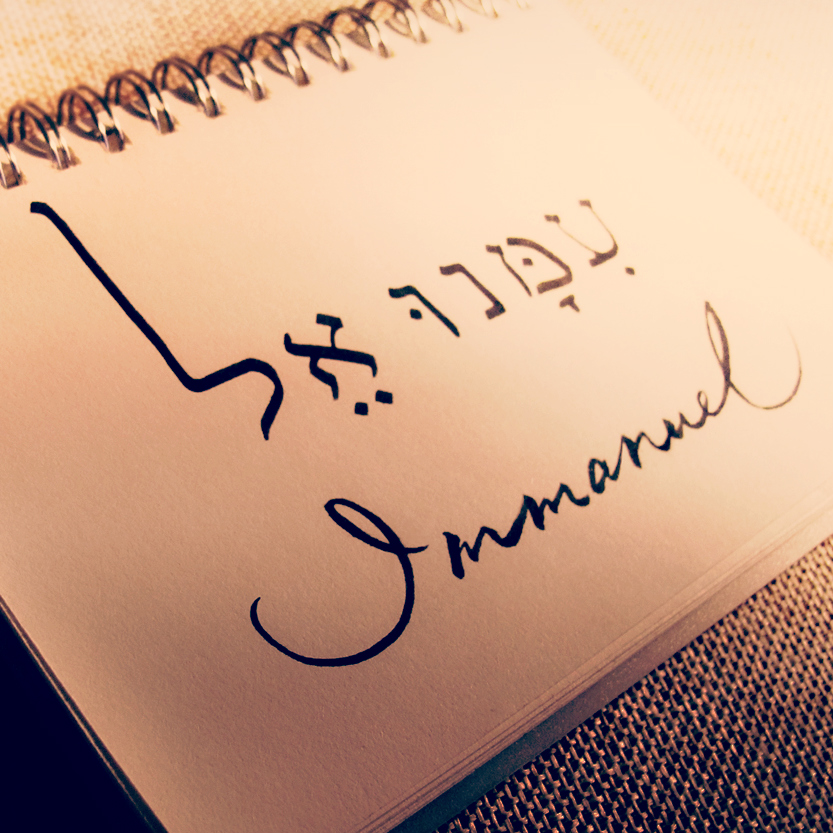 עִמָּנוּ אֵל
Immanuel